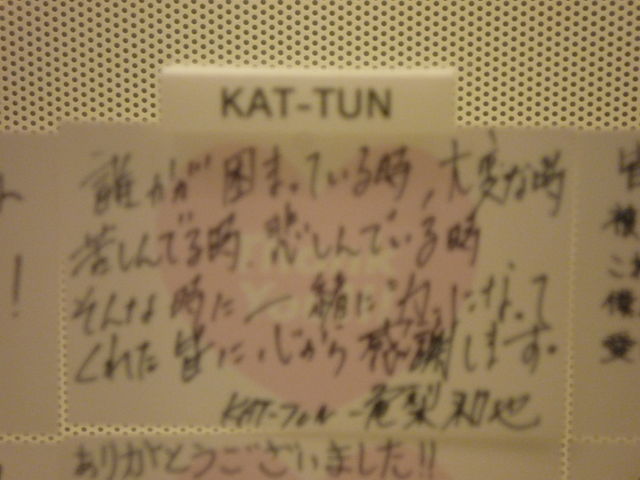 KAT-TUN
誰かが困まっている時、大変な時
苦しんでる時 悲しんでいる時
そんな時に一緒に力になって
くれた皆に、心から感謝します。
KAT-TUN 亀梨和也
ありがとうございました!!
!